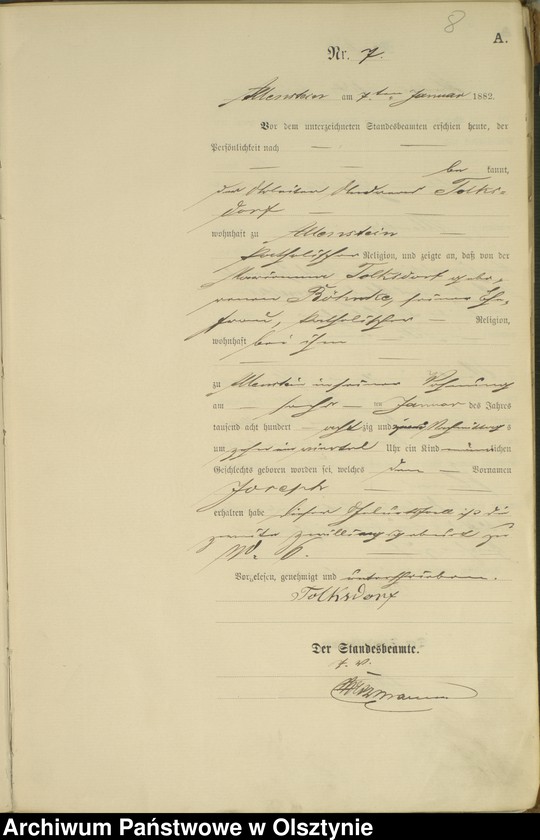 8
A.
Nr. 7.
Allenstein am 7ten Januar 1882.
Vor dem unterzeichneten Standesbeamten erschien heute, der
Persönlichkeit nach
be kannt,
der Arbeiter Andreas Tolks-
dorf
wohnhaft zu Allenstein
katholischer Religion, und zeigte an, daß von der
Marianna Tolksdorf gebo-
renen Böhnke, seiner Ehe-
frau, katholischer Religion,
wohnhaft bei ihm
zu Allenstein in seiner Wohnung
am sechs ten Januar des Jahres
tausend acht hundert acht zig und zwei Nachmittags
um zehn ein viertel Uhr ein Kind männlichen
Geschlechts geboren worden sei, welches den Vornamen
Joseph
erhalten habe. Dieser Geburtsfall ist die
zweite Zwillingsgeburt zu
No. 6.
Vorgelesen, genehmigt und unterschrieben.
Tolksdorf
Der Standesbeamte.
Archiwum Państwowe w Olsztynie